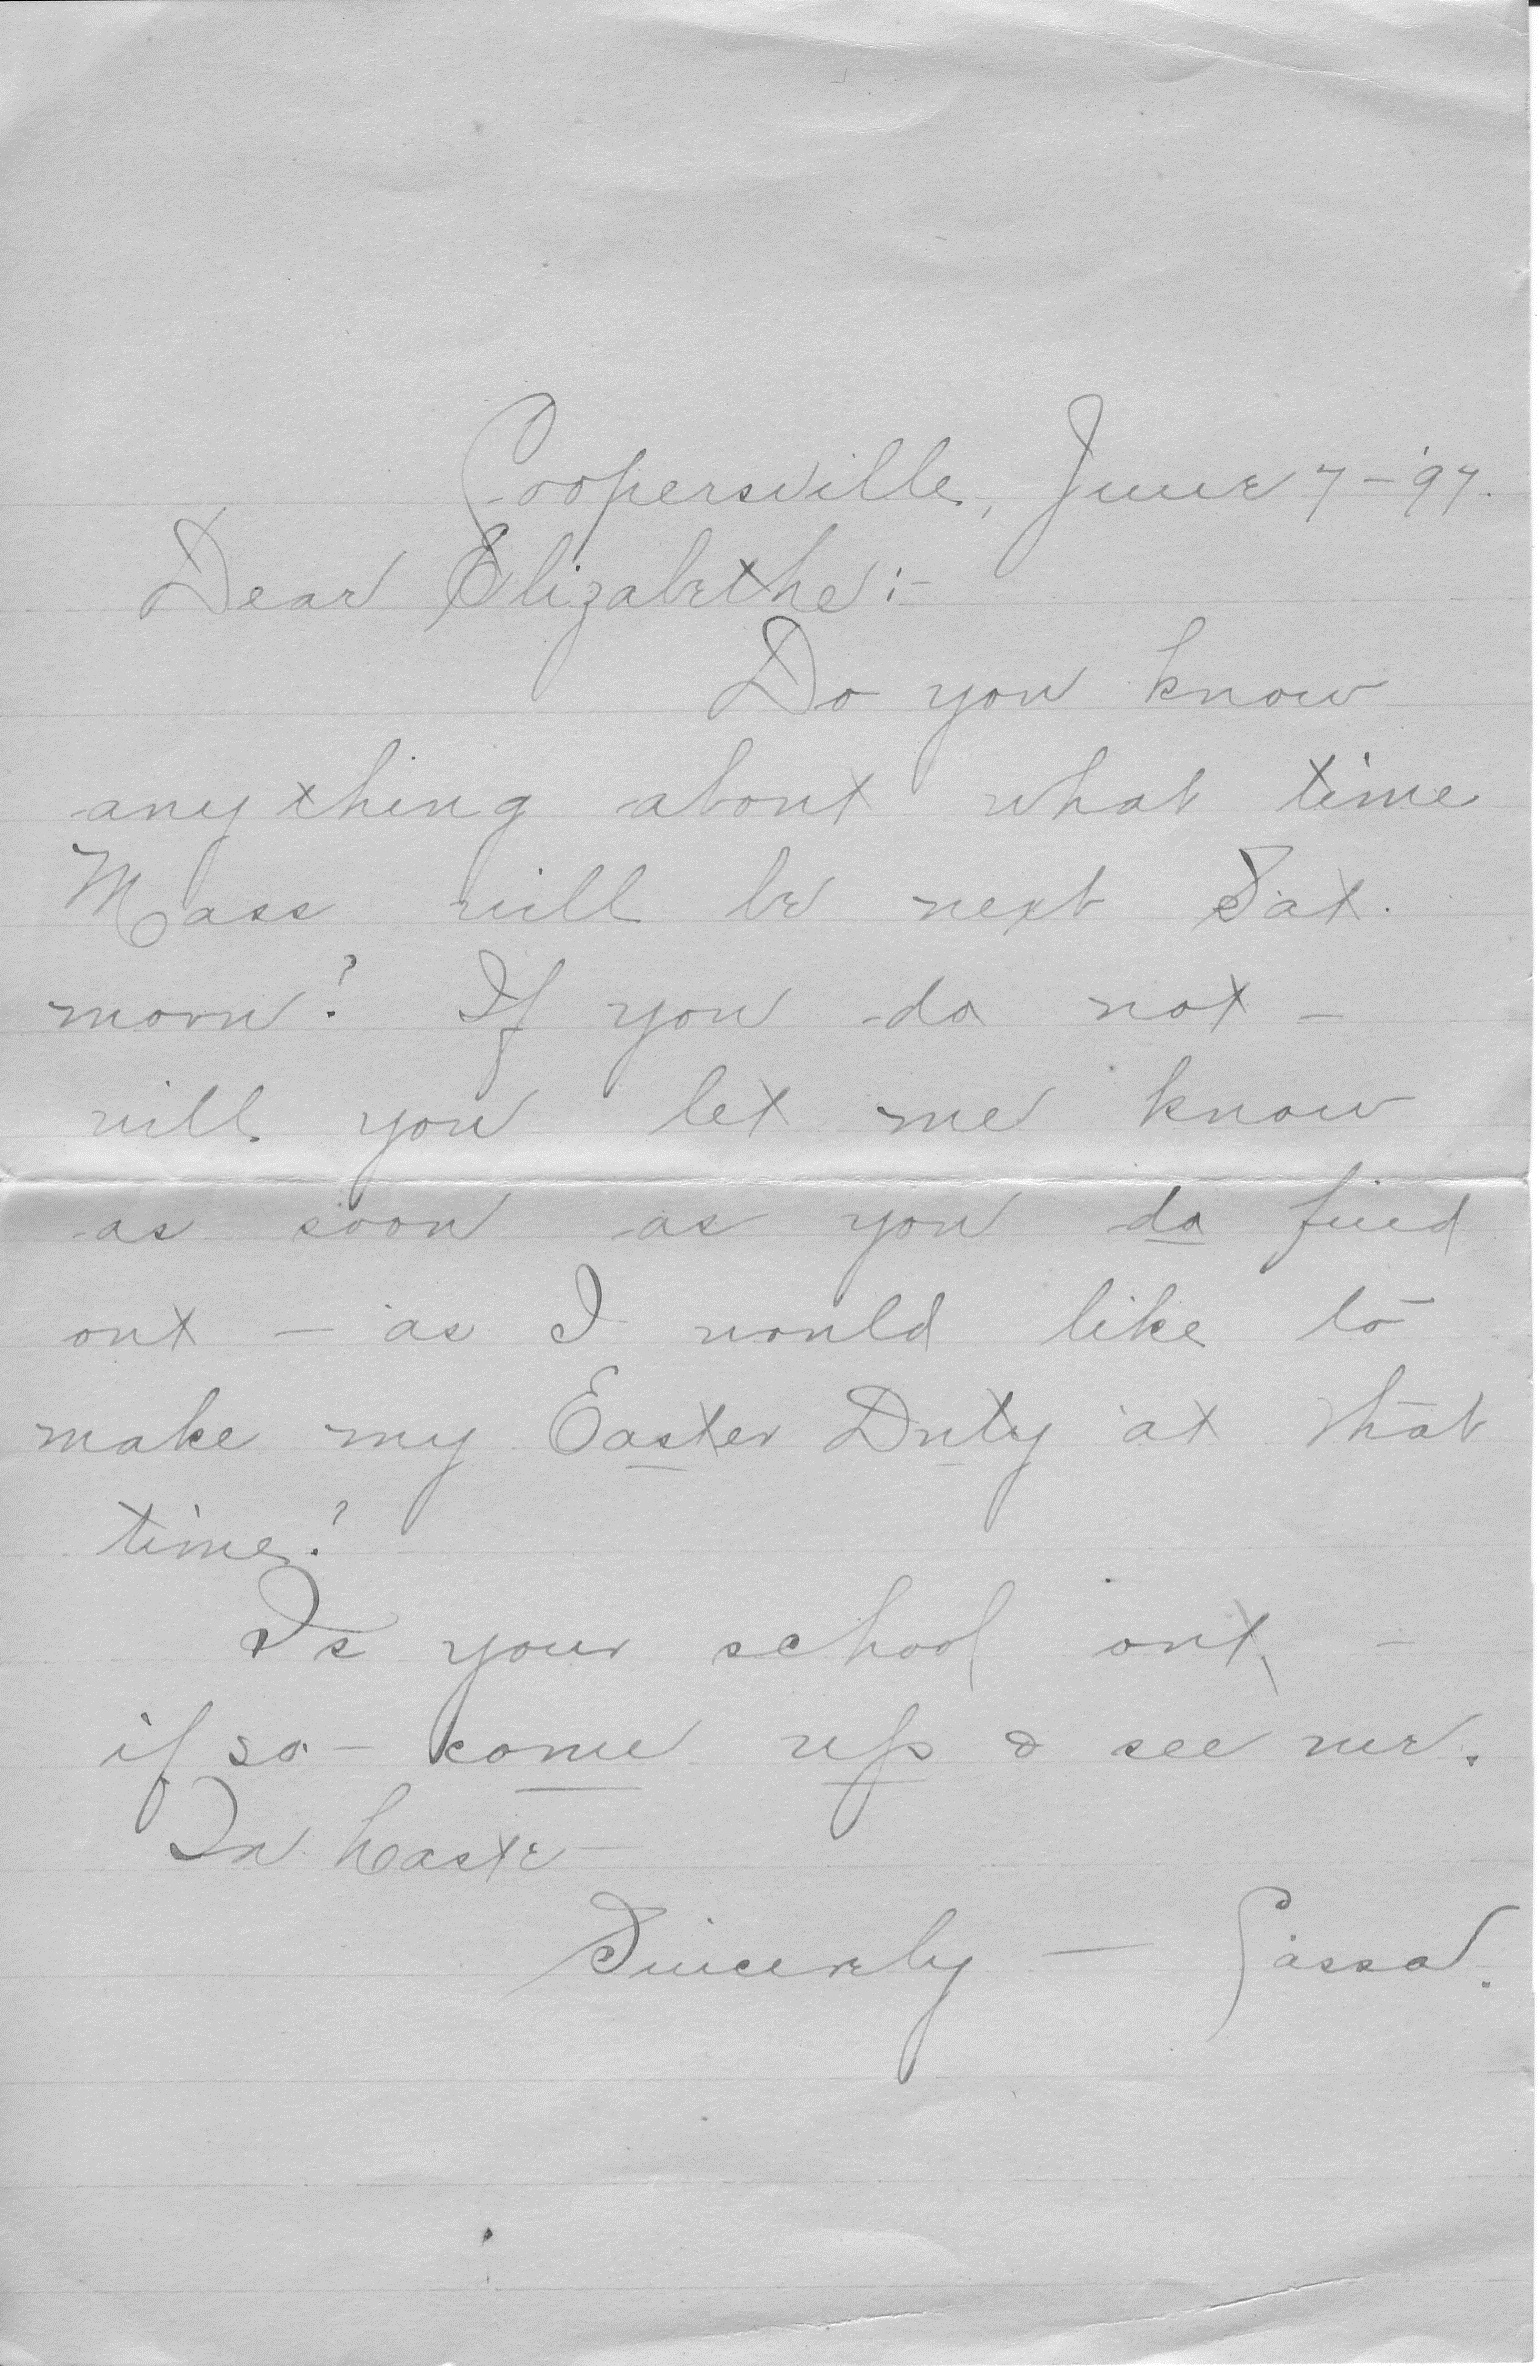 Coopersville, June 7-'97.
Dear Elizabethe:-
Do you know
anything about what time
Mass will be next Sat.
morn? If you do not -
will you let me know
as soon as you do find
out - as I would like to
make my Easter Duty at that
time?
Is your school out, -
if so - come up & see me.
In haste -
Sincerely -